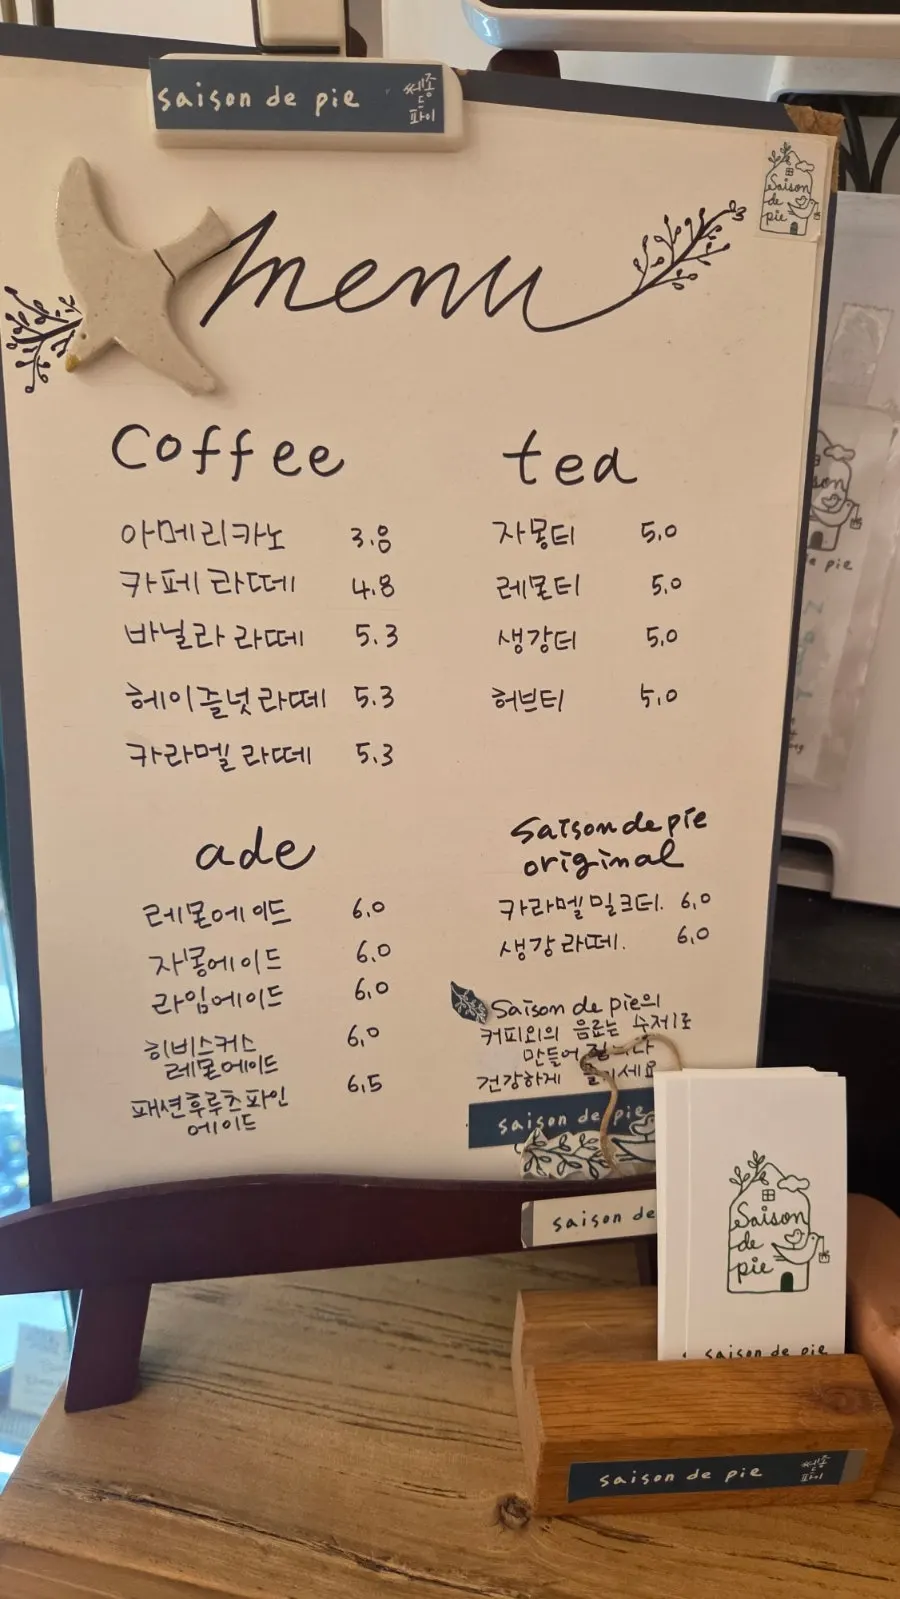 saison de pie
쎄종
드
파이
Saison
de
pie
menu
coffee
아메리카노 3.8
카페 라떼 4.8
바닐라 라떼 5.3
헤이즐넛 라떼 5.3
카라멜 라떼 5.3
tea
자몽티 5.0
레몬티 5.0
생강티 5.0
허브티 5.0
ade
레몬에이드 6.0
자몽에이드 6.0
라임에이드 6.0
히비스커스 6.0
레몬에이드
패션후루츠파인 6.5
에이드
Saison de pie
original
카라멜 밀크티. 6.0
생강 라떼. 6.0
Saison de pie의
커피외의 음료는 수제로
만들어
건강하게
saison de pie
saison de
Saison
de
pie
saison de pie
saison de pie
쎄종
드
파이